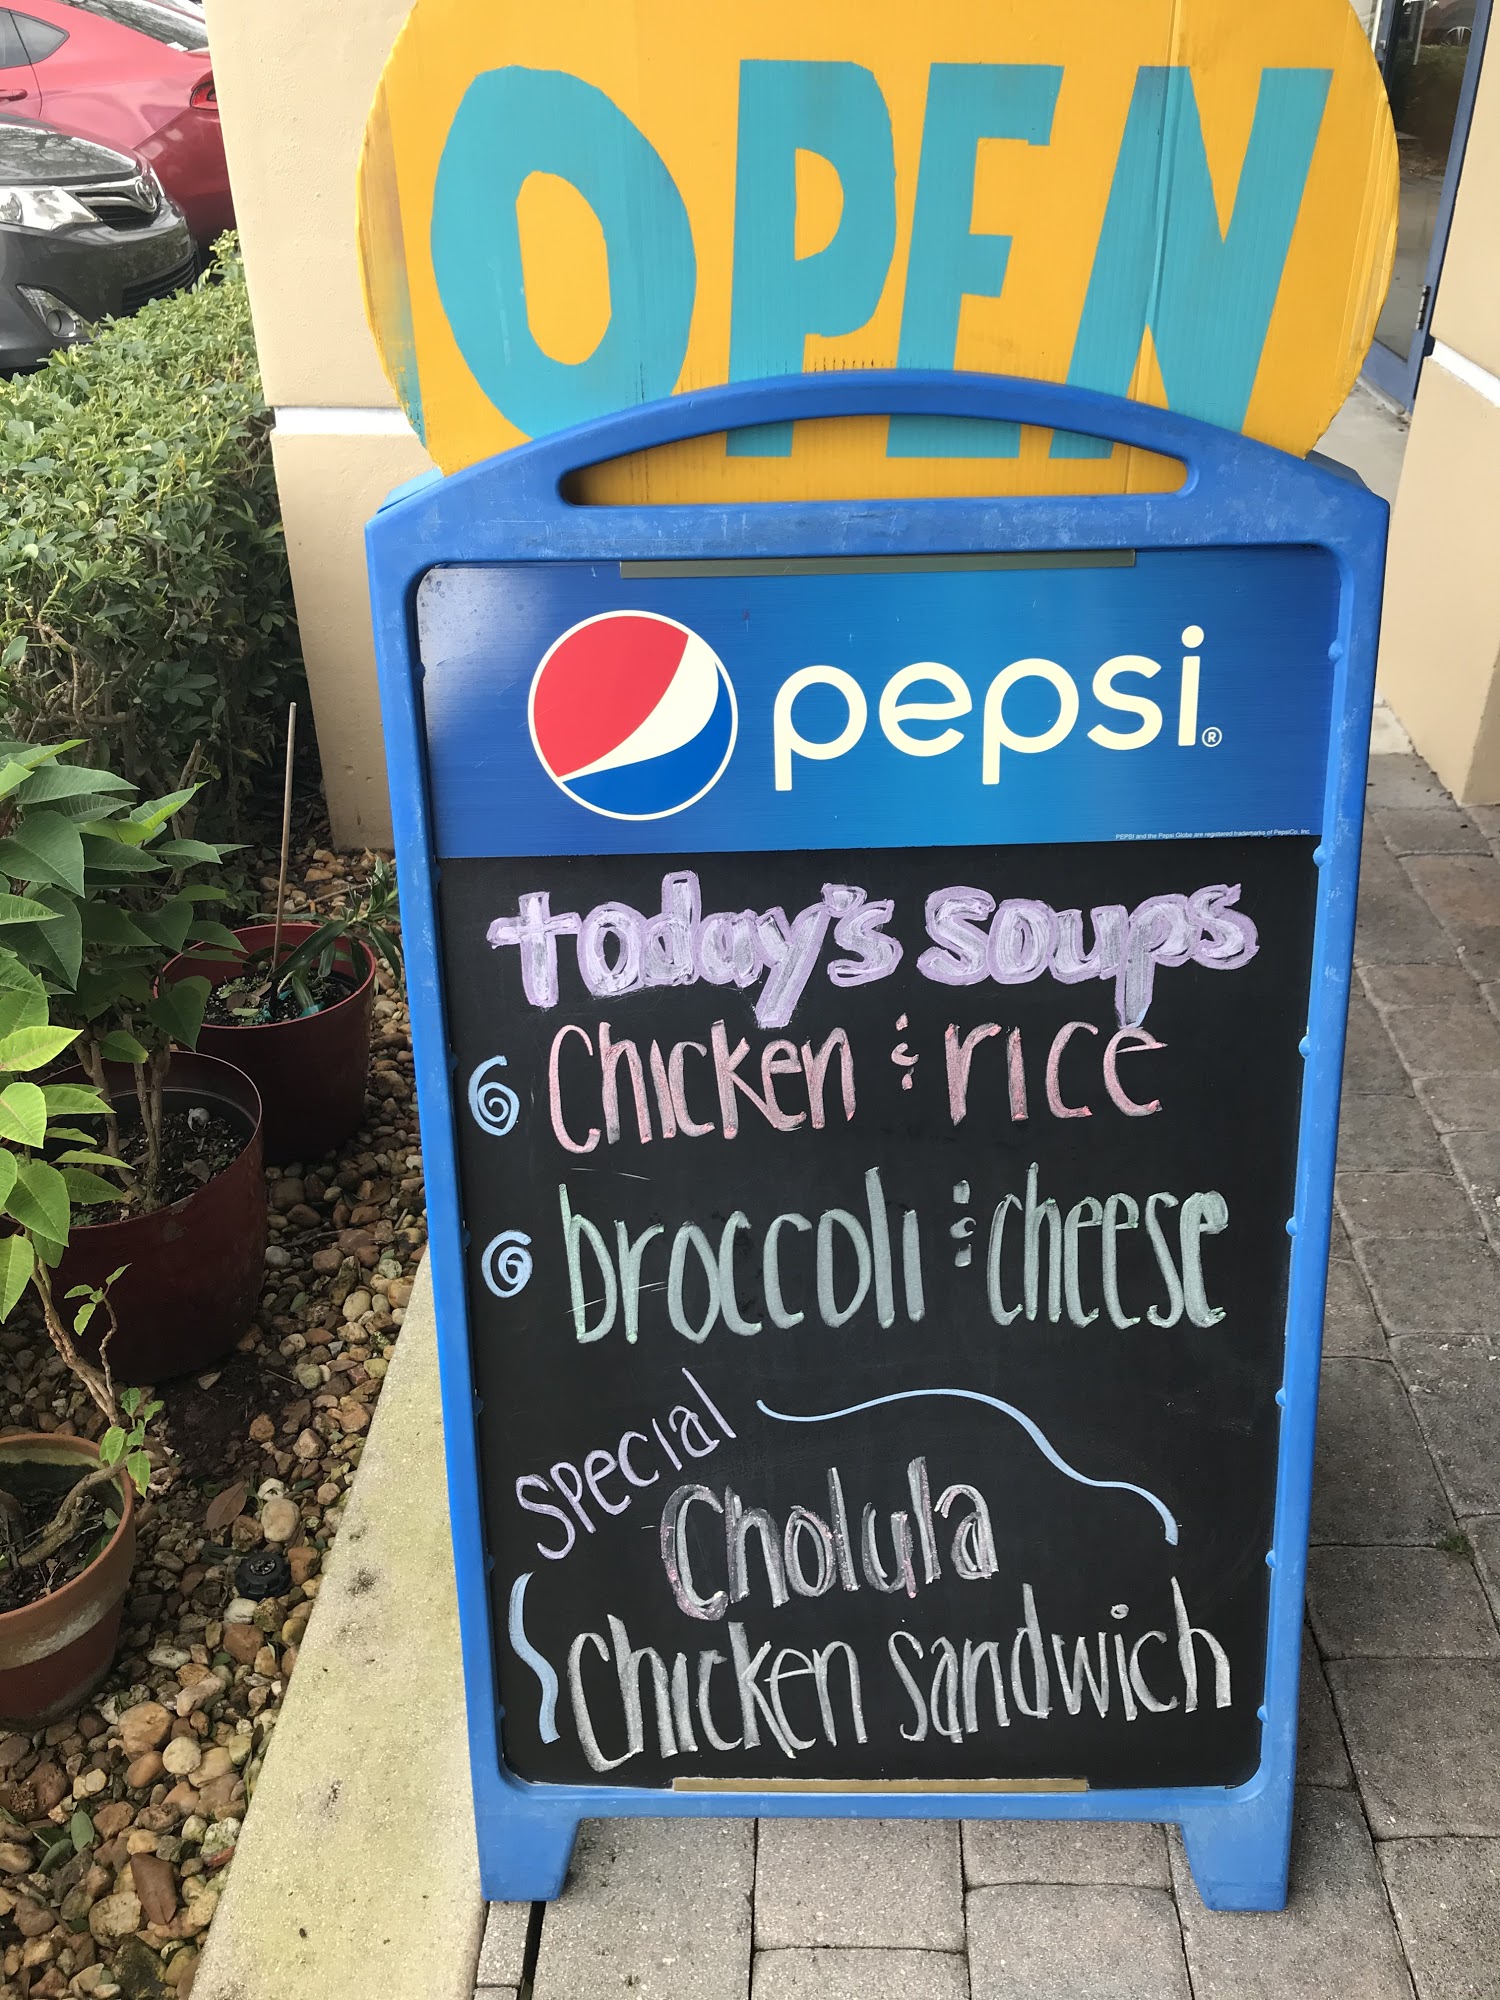 OPEN
pepsi®
PEPSI and the Pepsi Globe are registered trademarks of PepsiCo, Inc
today's soups
Chicken & rice
broccoli & cheese
Special
Cholula
Chicken sandwich